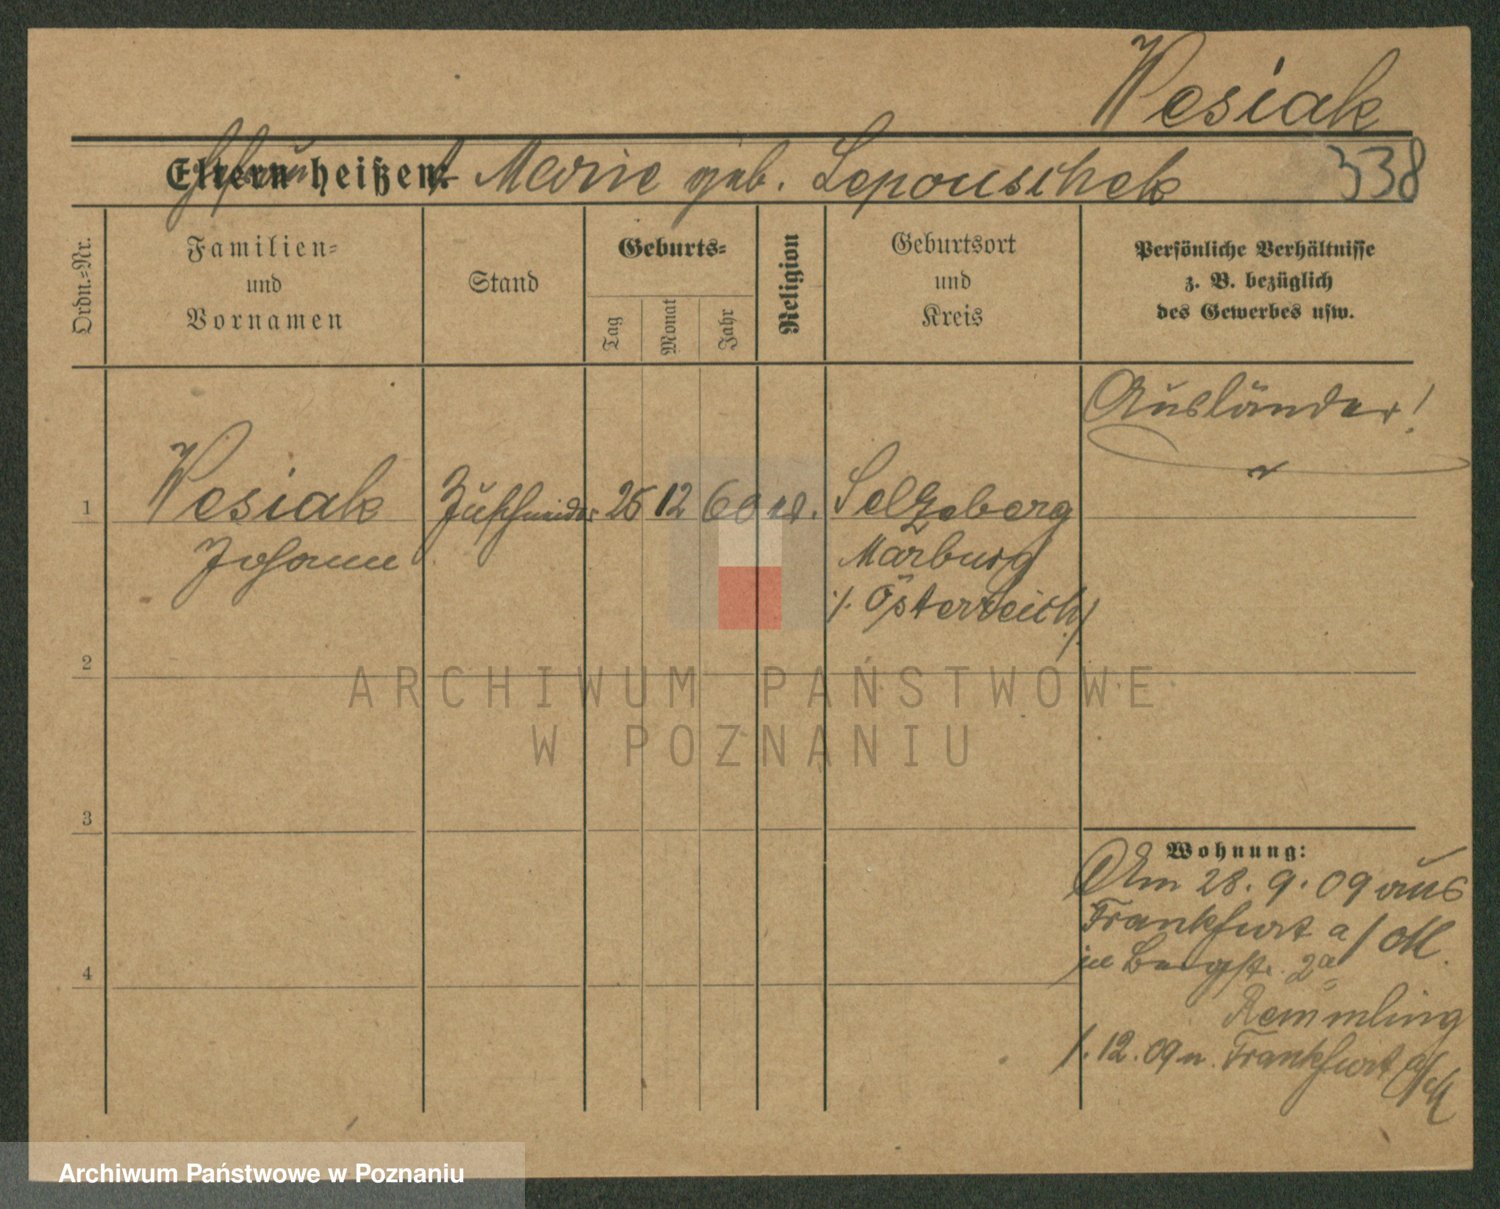 Wesiak
Eltern heißen: Marie geb. Lepouschek 338
Ordn.=Nr.
Familien=
und
Vornamen
Stand
Geburts=
Tag
Monat
Jahr
Religion
Geburtsort
und
Kreis
Persönliche Verhältnisse
z. B. bezüglich
des Gewerbes usw.
Ausländer!
1 Wesiak Zuschneider 25 12 60 Selzaberg
Johann Marburg
/. Österreich /.
2
3
4
Wohnung:
Am 28. 9. 09 aus
Frankfurt a/M.
in Bergstr. 2a
Remmling
1. 12. 09 n. Frankfurt a/M
ARCHIWUM PAŃSTWOWE
W POZNANIU
Archiwum Państwowe w Poznaniu